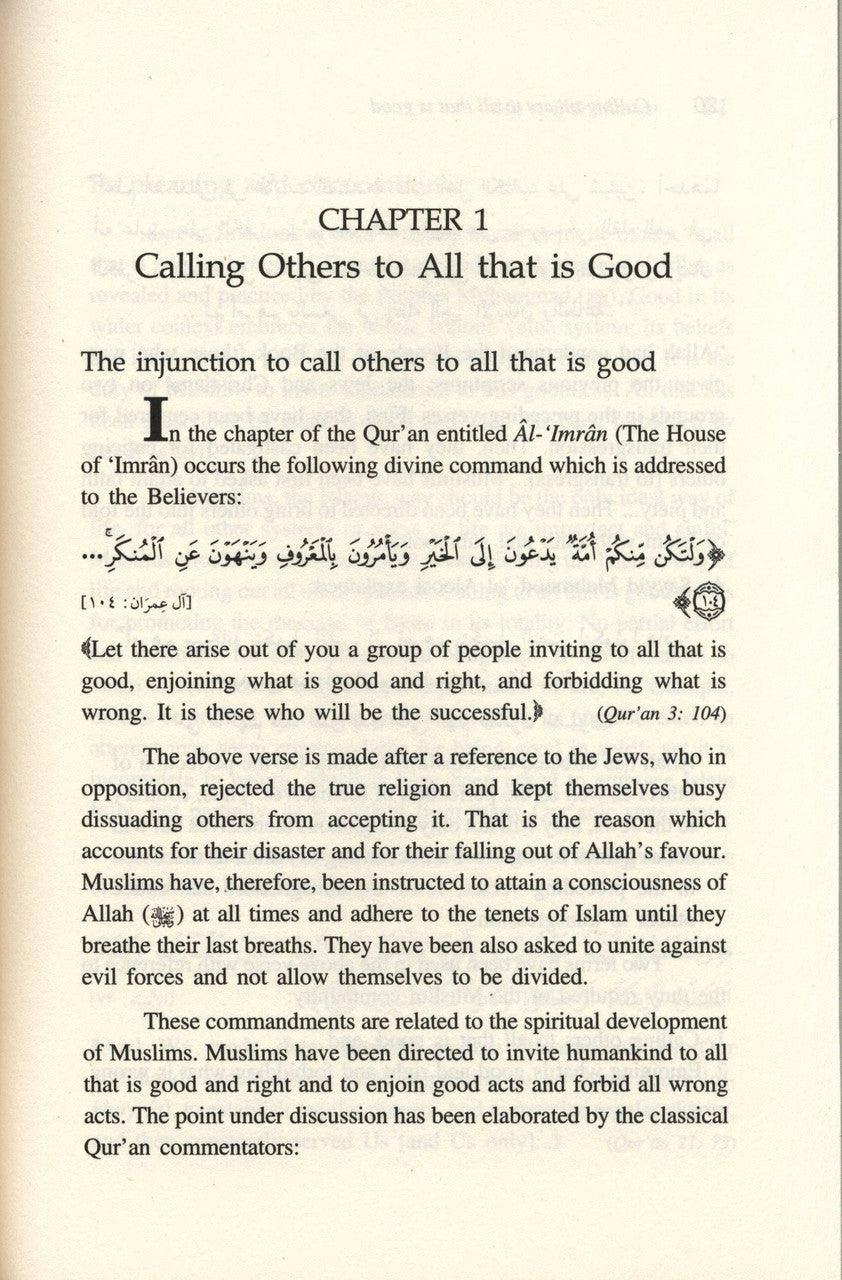 CHAPTER 1
Calling Others to All that is Good
The injunction to call others to all that is good
In the chapter of the Qur'an entitled Âl-'Imrân (The House
of 'Imrân) occurs the following divine command which is addressed
to the Believers:
﴿وَلْتَكُن مِّنكُمْ أُمَّةٌ يَدْعُونَ إِلَى ٱلْخَيْرِ وَيَأْمُرُونَ بِٱلْمَعْرُوفِ وَيَنْهَوْنَ عَنِ ٱلْمُنكَرِ ۚ ...
١٠٤﴾ [آل عِمرَان: ١٠٤]
﴾Let there arise out of you a group of people inviting to all that is
good, enjoining what is good and right, and forbidding what is
wrong. It is these who will be the successful.﴿ (Qur'an 3: 104)
The above verse is made after a reference to the Jews, who in
opposition, rejected the true religion and kept themselves busy
dissuading others from accepting it. That is the reason which
accounts for their disaster and for their falling out of Allah's favour.
Muslims have, therefore, been instructed to attain a consciousness of
Allah () at all times and adhere to the tenets of Islam until they
breathe their last breaths. They have been also asked to unite against
evil forces and not allow themselves to be divided.
These commandments are related to the spiritual development
of Muslims. Muslims have been directed to invite humankind to all
that is good and right and to enjoin good acts and forbid all wrong
acts. The point under discussion has been elaborated by the classical
Qur'an commentators: